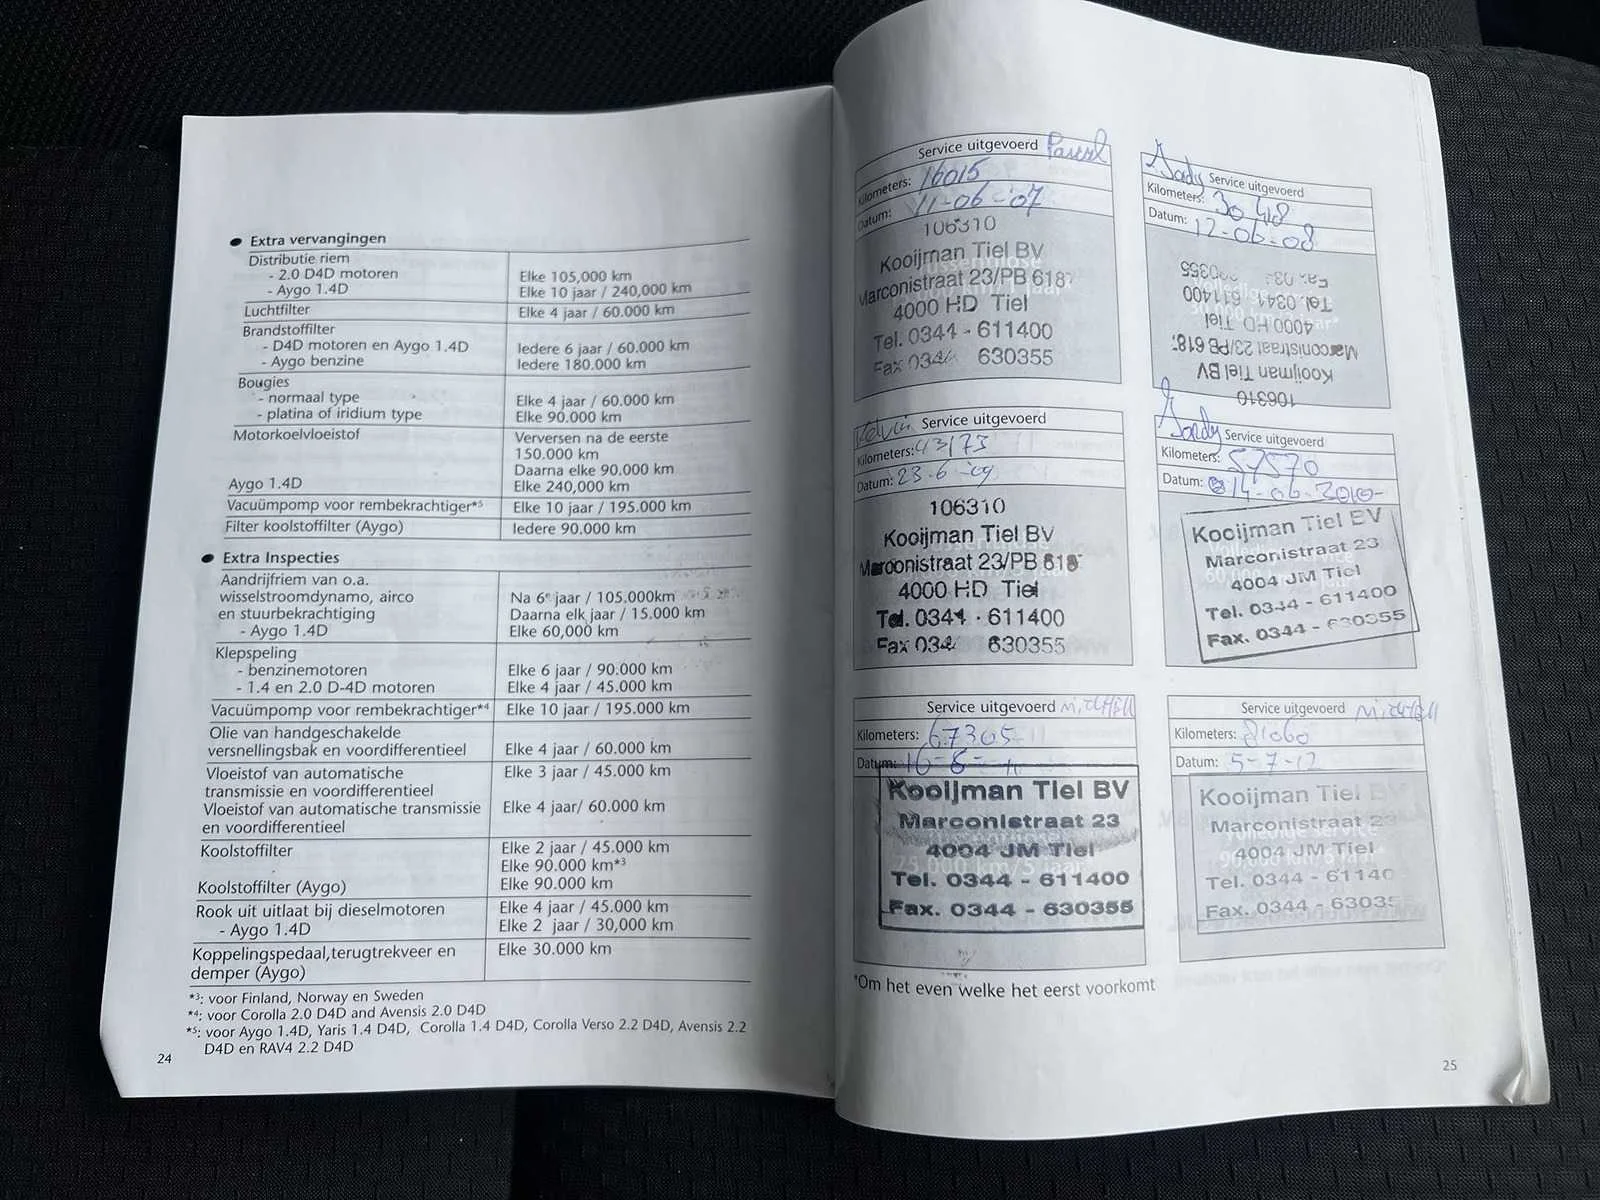 Extra vervangingen
Distributie riem
- 2.0 D4D motoren Elke 105,000 km
- Aygo 1.4D Elke 10 jaar / 240,000 km
Luchtfilter Elke 4 jaar / 60.000 km
Brandstoffilter
- D4D motoren en Aygo 1.4D Iedere 6 jaar / 60.000 km
- Aygo benzine Iedere 180.000 km
Bougies
- normaal type Elke 4 jaar / 60.000 km
- platina of iridium type Elke 90.000 km
Motorkoelvloeistof Verversen na de eerste
150.000 km
Daarna elke 90.000 km
Aygo 1.4D Elke 240,000 km
Vacuümpomp voor rembekrachtiger*5 Elke 10 jaar / 195.000 km
Filter koolstoffilter (Aygo) Iedere 90.000 km
Extra Inspecties
Aandrijfriem van o.a.
wisselstroomdynamo, airco Na 6e jaar / 105.000km
en stuurbekrachtiging Daarna elk jaar / 15.000 km
- Aygo 1.4D Elke 60,000 km
Klepspeling
- benzinemotoren Elke 6 jaar / 90.000 km
- 1.4 en 2.0 D-4D motoren Elke 4 jaar / 45.000 km
Vacuümpomp voor rembekrachtiger*4 Elke 10 jaar / 195.000 km
Olie van handgeschakelde
versnellingsbak en voordifferentieel Elke 4 jaar / 60.000 km
Vloeistof van automatische Elke 3 jaar / 45.000 km
transmissie en voordifferentieel
Vloeistof van automatische transmissie Elke 4 jaar/ 60.000 km
en voordifferentieel
Koolstoffilter Elke 2 jaar / 45.000 km
Elke 90.000 km*3
Koolstoffilter (Aygo) Elke 90.000 km
Rook uit uitlaat bij dieselmotoren Elke 4 jaar / 45.000 km
- Aygo 1.4D Elke 2 jaar / 30,000 km
Koppelingspedaal,terugtrekveer en Elke 30.000 km
demper (Aygo)
*3: voor Finland, Norway en Sweden
*4: voor Corolla 2.0 D4D and Avensis 2.0 D4D
*5: voor Aygo 1.4D, Yaris 1.4 D4D, Corolla 1.4 D4D, Corolla Verso 2.2 D4D, Avensis 2.2
D4D en RAV4 2.2 D4D
24
Service uitgevoerd Pascal
Kilometers: 16015
Datum: 11-06-'07
106310
Kooijman Tiel BV
Marconistraat 23/PB 618
4000 HD Tiel
Tel. 0344 - 611400
Fax 0344 630355
Service uitgevoerd
Kilometers: 30418
Datum: 12-06-08
106310
Kooijman Tiel BV
Marconistraat 23/PB 618
4000 HD Tiel
Tel. 0344 611400
Kelvin Service uitgevoerd
Kilometers: 43173
Datum: 23-6-09
106310
Kooijman Tiel BV
Marconistraat 23/PB 618
4000 HD Tiel
Tel. 0344 - 611400
Fax 034 630355
Service uitgevoerd
Kilometers: 57570
Datum: 14-06-2010-
Kooijman Tiel BV
Marconistraat 23
4004 JM Tiel
Tel. 0344 - 611400
Fax. 0344 - 630355
Service uitgevoerd Mitchell
Kilometers: 67305
Datum: 16-6-11
Kooijman Tiel BV
Marconistraat 23
4004 JM Tiel
Tel. 0344 - 611400
Fax. 0344 - 630355
Service uitgevoerd Mitchell
Kilometers: 81060
Datum: 5-7-12
Kooijman Tiel BV
Marconistraat 23
4004 JM Tiel
Tel. 0344 - 61140
Fax. 0344 - 63035
*Om het even welke het eerst voorkomt
25